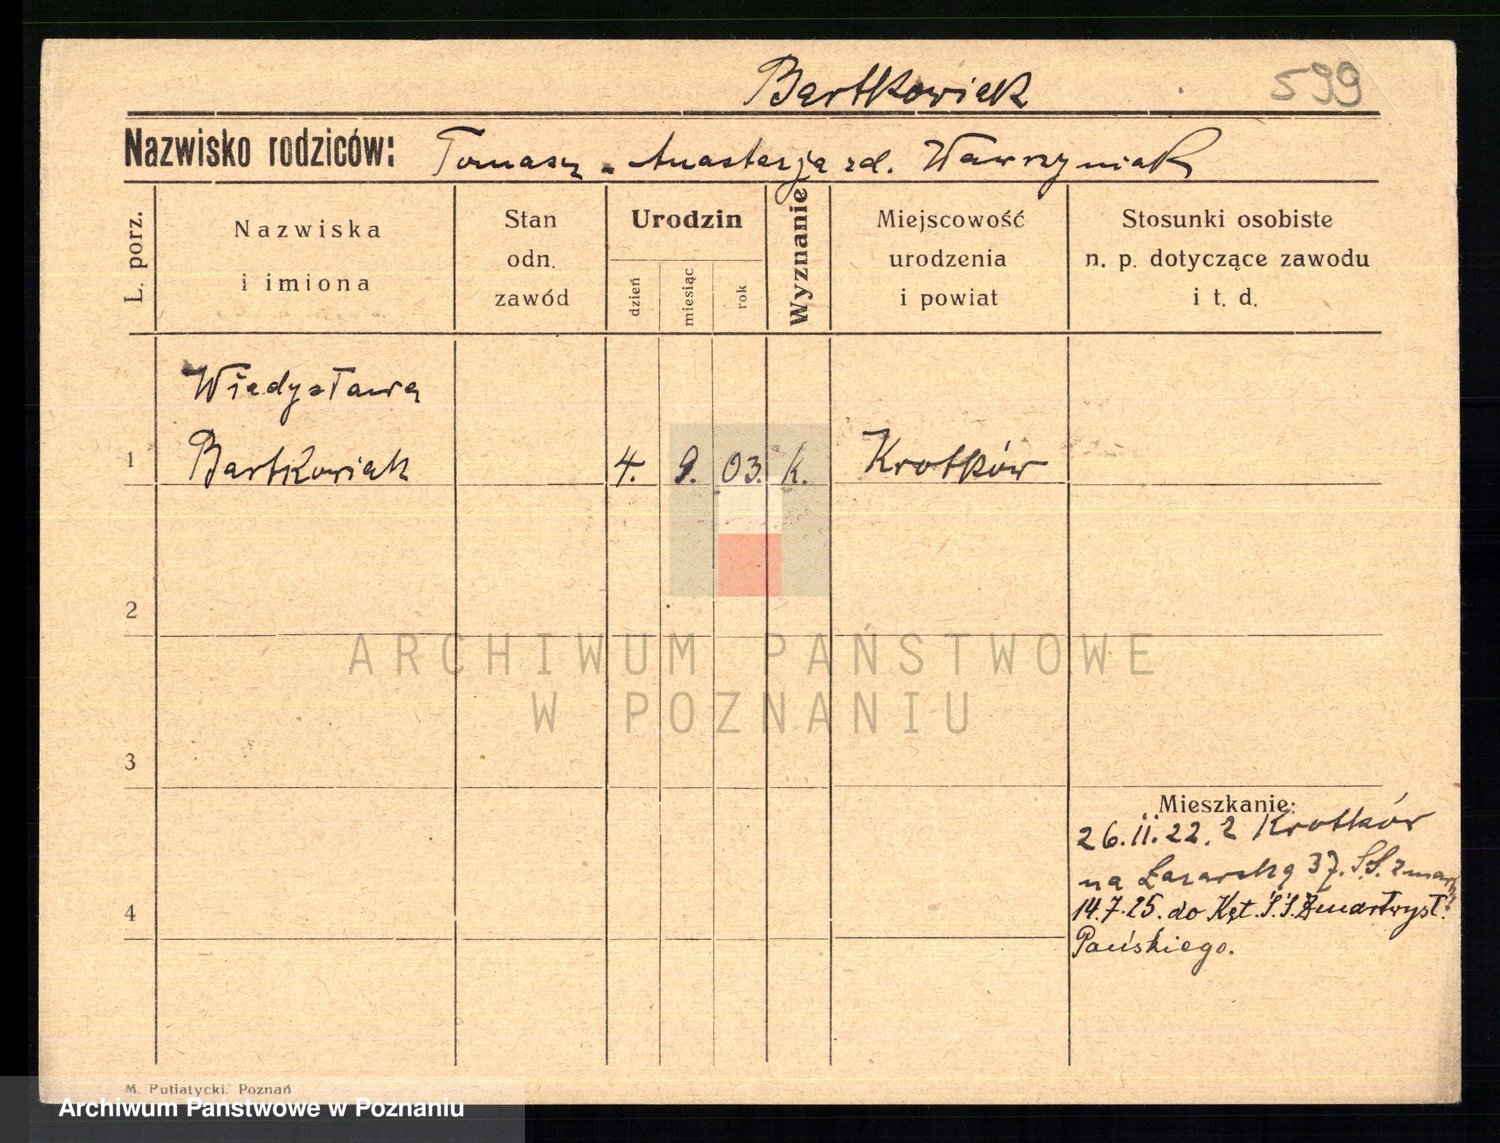 Bartkowiak 599
Nazwisko rodziców: Tomasz - Anastazja zd. Wawrzyniak
L. porz.
Nazwiska
i imiona
Stan
odn.
zawód
Urodzin
dzień
miesiąc
rok
Wyznanie
Miejscowość
urodzenia
i powiat
Stosunki osobiste
n. p. dotyczące zawodu
i t. d.
Władysława
1 Bartkowiak 4. 9. 03. k. Krotków
2
ARCHIWUM PAŃSTWOWE
W POZNANIU
3
Mieszkanie:
26.II.22. z Krotków
na Łazarską 37. S.S. zmar
4
14.7.25. do Kęt. S.S. Zmartwyst.
Pańskiego.
M. Putiatycki. Poznań
Archiwum Państwowe w Poznaniu